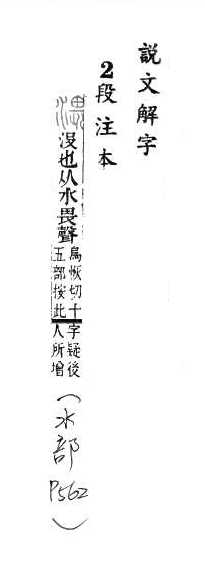 説文解字
2段注本
渨 没也从水畏聲烏恢切十五部按此字疑後人所增(水部P562)